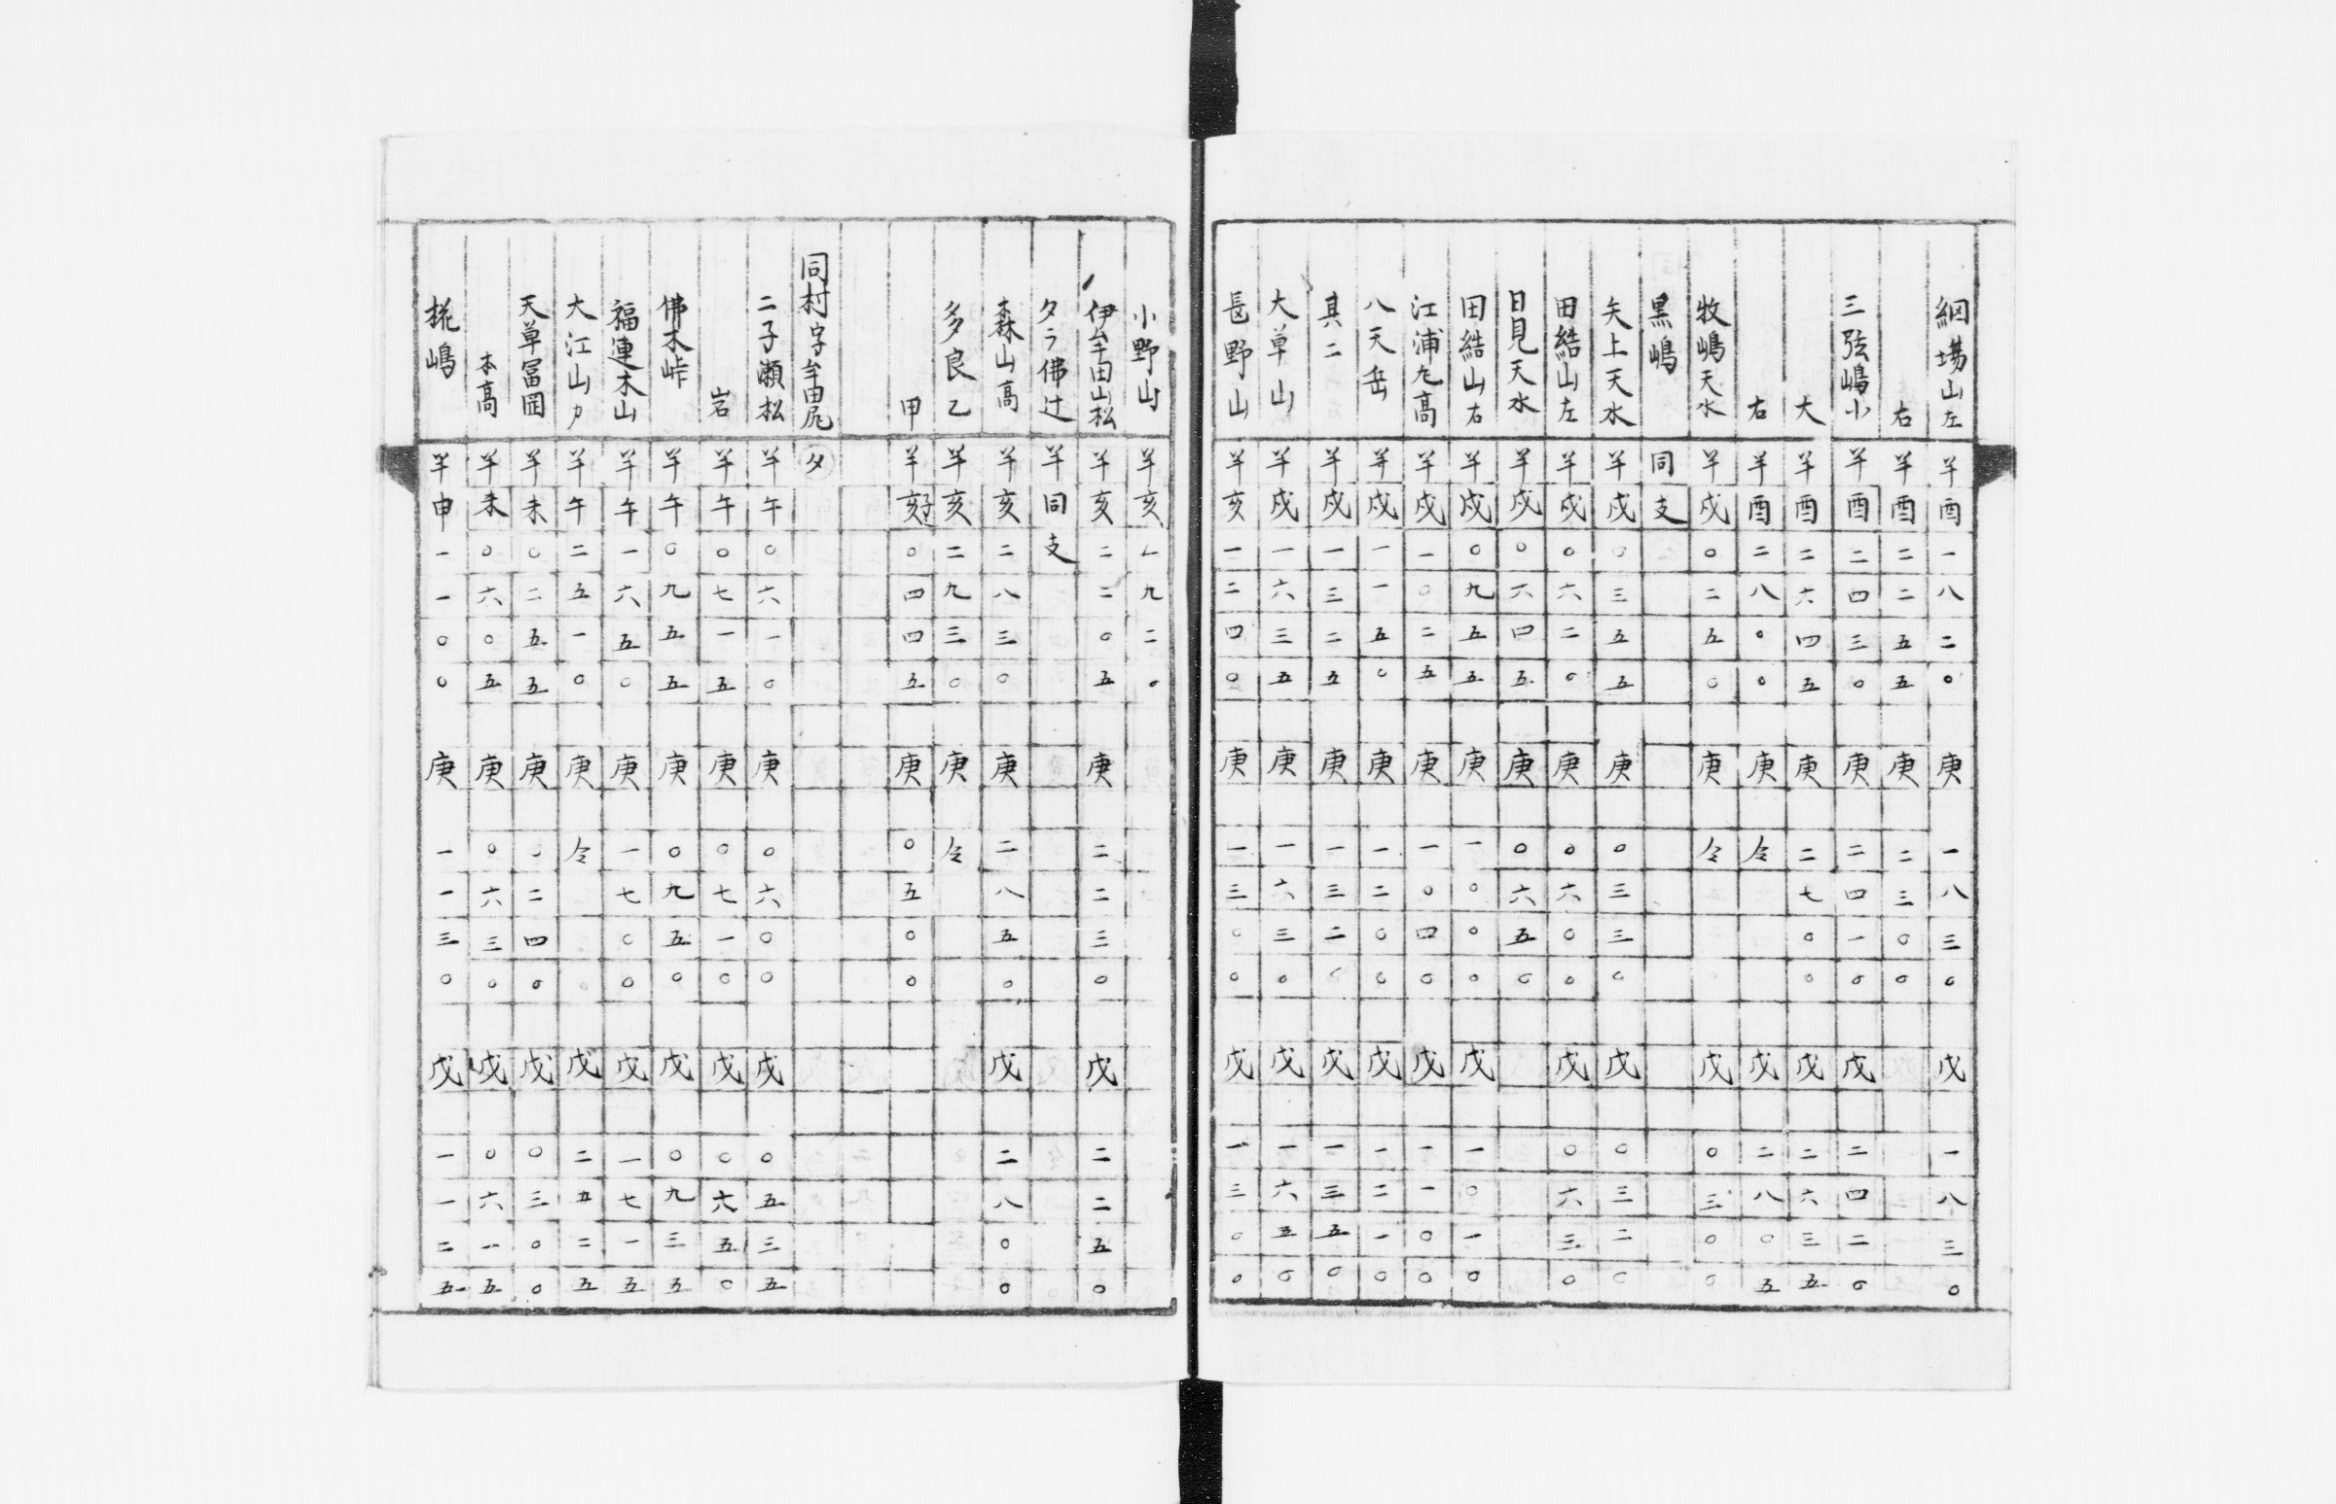 網場山左 羊酉一八二〇 庚一八三〇 戊一八三〇
右 羊酉二二五五 庚二三〇〇
三弦嶋小 羊酉二四三〇 庚二四一〇 戊二四二〇
大 羊酉二六四五 庚二七〇〇 戊二六三五
右 羊酉二八〇〇 庚仝 戊二八〇五
牧嶋天水 羊戌〇二五〇 庚仝 戊〇三〇〇
黒嶋 同支
矢上天水 羊戌〇三五五 庚〇三三〇 戊〇三二〇
田結山左 羊戌〇六二〇 庚〇六〇〇 戊〇六三〇
日見天水 羊戌〇六四五 庚〇六五〇
田結山右 羊戌〇九五五 庚一〇〇〇 戊一〇一〇
江浦九高 羊戌一〇二五 庚一〇四〇 戊一一〇〇
八天岳 羊戌一一五〇 庚一二〇〇 戊一二一〇
其二 羊戌一三二五 庚一三二〇 戊一三五〇
大草山 羊戌一六三五 庚一六三〇 戊一六五〇
長野山 羊亥一二四〇 庚一三〇〇 戊一三〇〇
小野山 羊亥一九二〇
伊牟田山松 羊亥二二〇五 庚二二三〇 戊二二五〇
タラ佛辻 羊同支
森山高 羊亥二八三〇 庚二八五〇 戊二八〇〇
多良乙 羊亥二九三〇 庚仝
甲 羊亥〇四四五 庚〇五〇〇
同村字牟田尻 夕
二子瀬松 羊午〇六一〇 庚〇六〇〇 戊〇五三五
岩 羊午〇七一五 庚〇七一〇 戊〇六五〇
佛木峠 羊午〇九五五 庚〇九五〇 戊〇九三五
福連木山 羊午一六五〇 庚一七〇〇 戊一七一五
大江山 羊午二五一〇 庚仝 戊二五二五
天草冨岡 羊未〇二五五 庚〇二四〇 戊〇三〇〇
本高 羊未〇六〇五 庚〇六三〇 戊〇六一五
嶋 羊申一一〇〇 庚一一三〇 戊一一二五